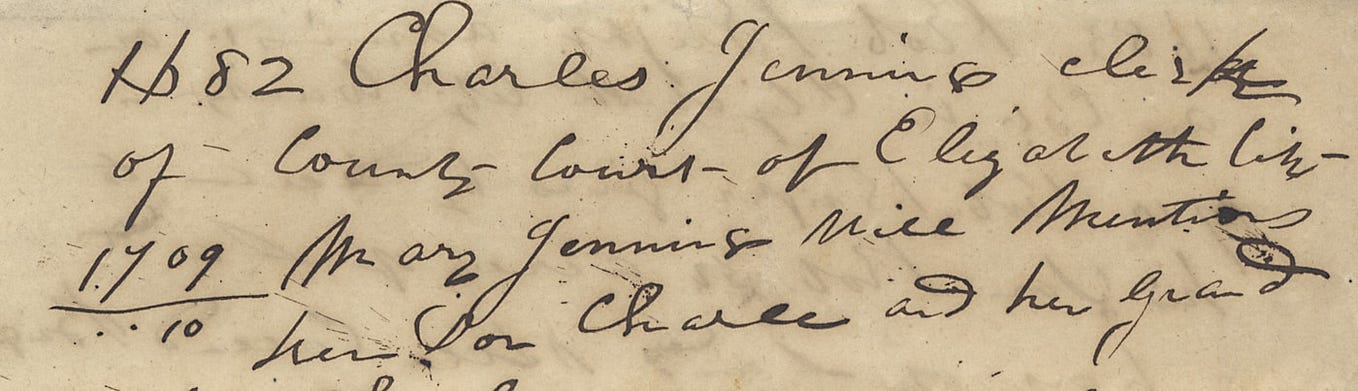 1682 Charles Jennings clerk
of County Court of Elizabeth City
1709 Mary Jennings Will Mentions
10 her Son Charle and her Grand